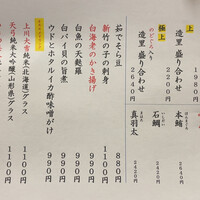 上
造里盛り合わせ
1980円
極上
のどぐろ入り
造里盛り合わせ
2640円
本鮪
2640円
石鯛
真羽太
茹でそら豆
880円
新竹の子の刺身
1100円
白海老のかき揚げ
990円
白魚の天麩羅
990円
白バイ貝の旨煮
990円
ウドとホタルイカ酢味噌がけ
990円
上川大雪純米(北海道)グラス
1100円
天弓 純米大吟醸(山形県)グラス
1100円